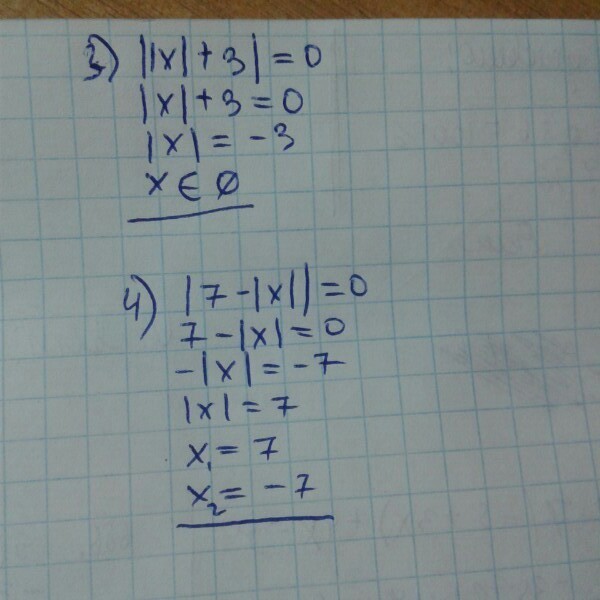 3) ||x| + 3| = 0
|x| + 3 = 0
|x| = -3
x ∈ ∅
4) |7 - |x|| = 0
7 - |x| = 0
-|x| = -7
|x| = 7
x₁ = 7
x₂ = -7